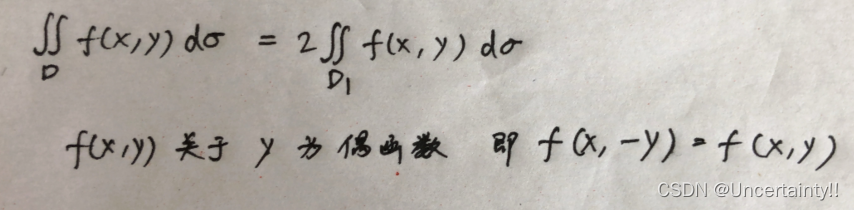 ∬ f(x,y) dσ = 2∬ f(x,y) dσ
D D₁
f(x,y) 关于 y 为偶函数 即 f(x,-y)=f(x,y)
CSDN @Uncertainty!!